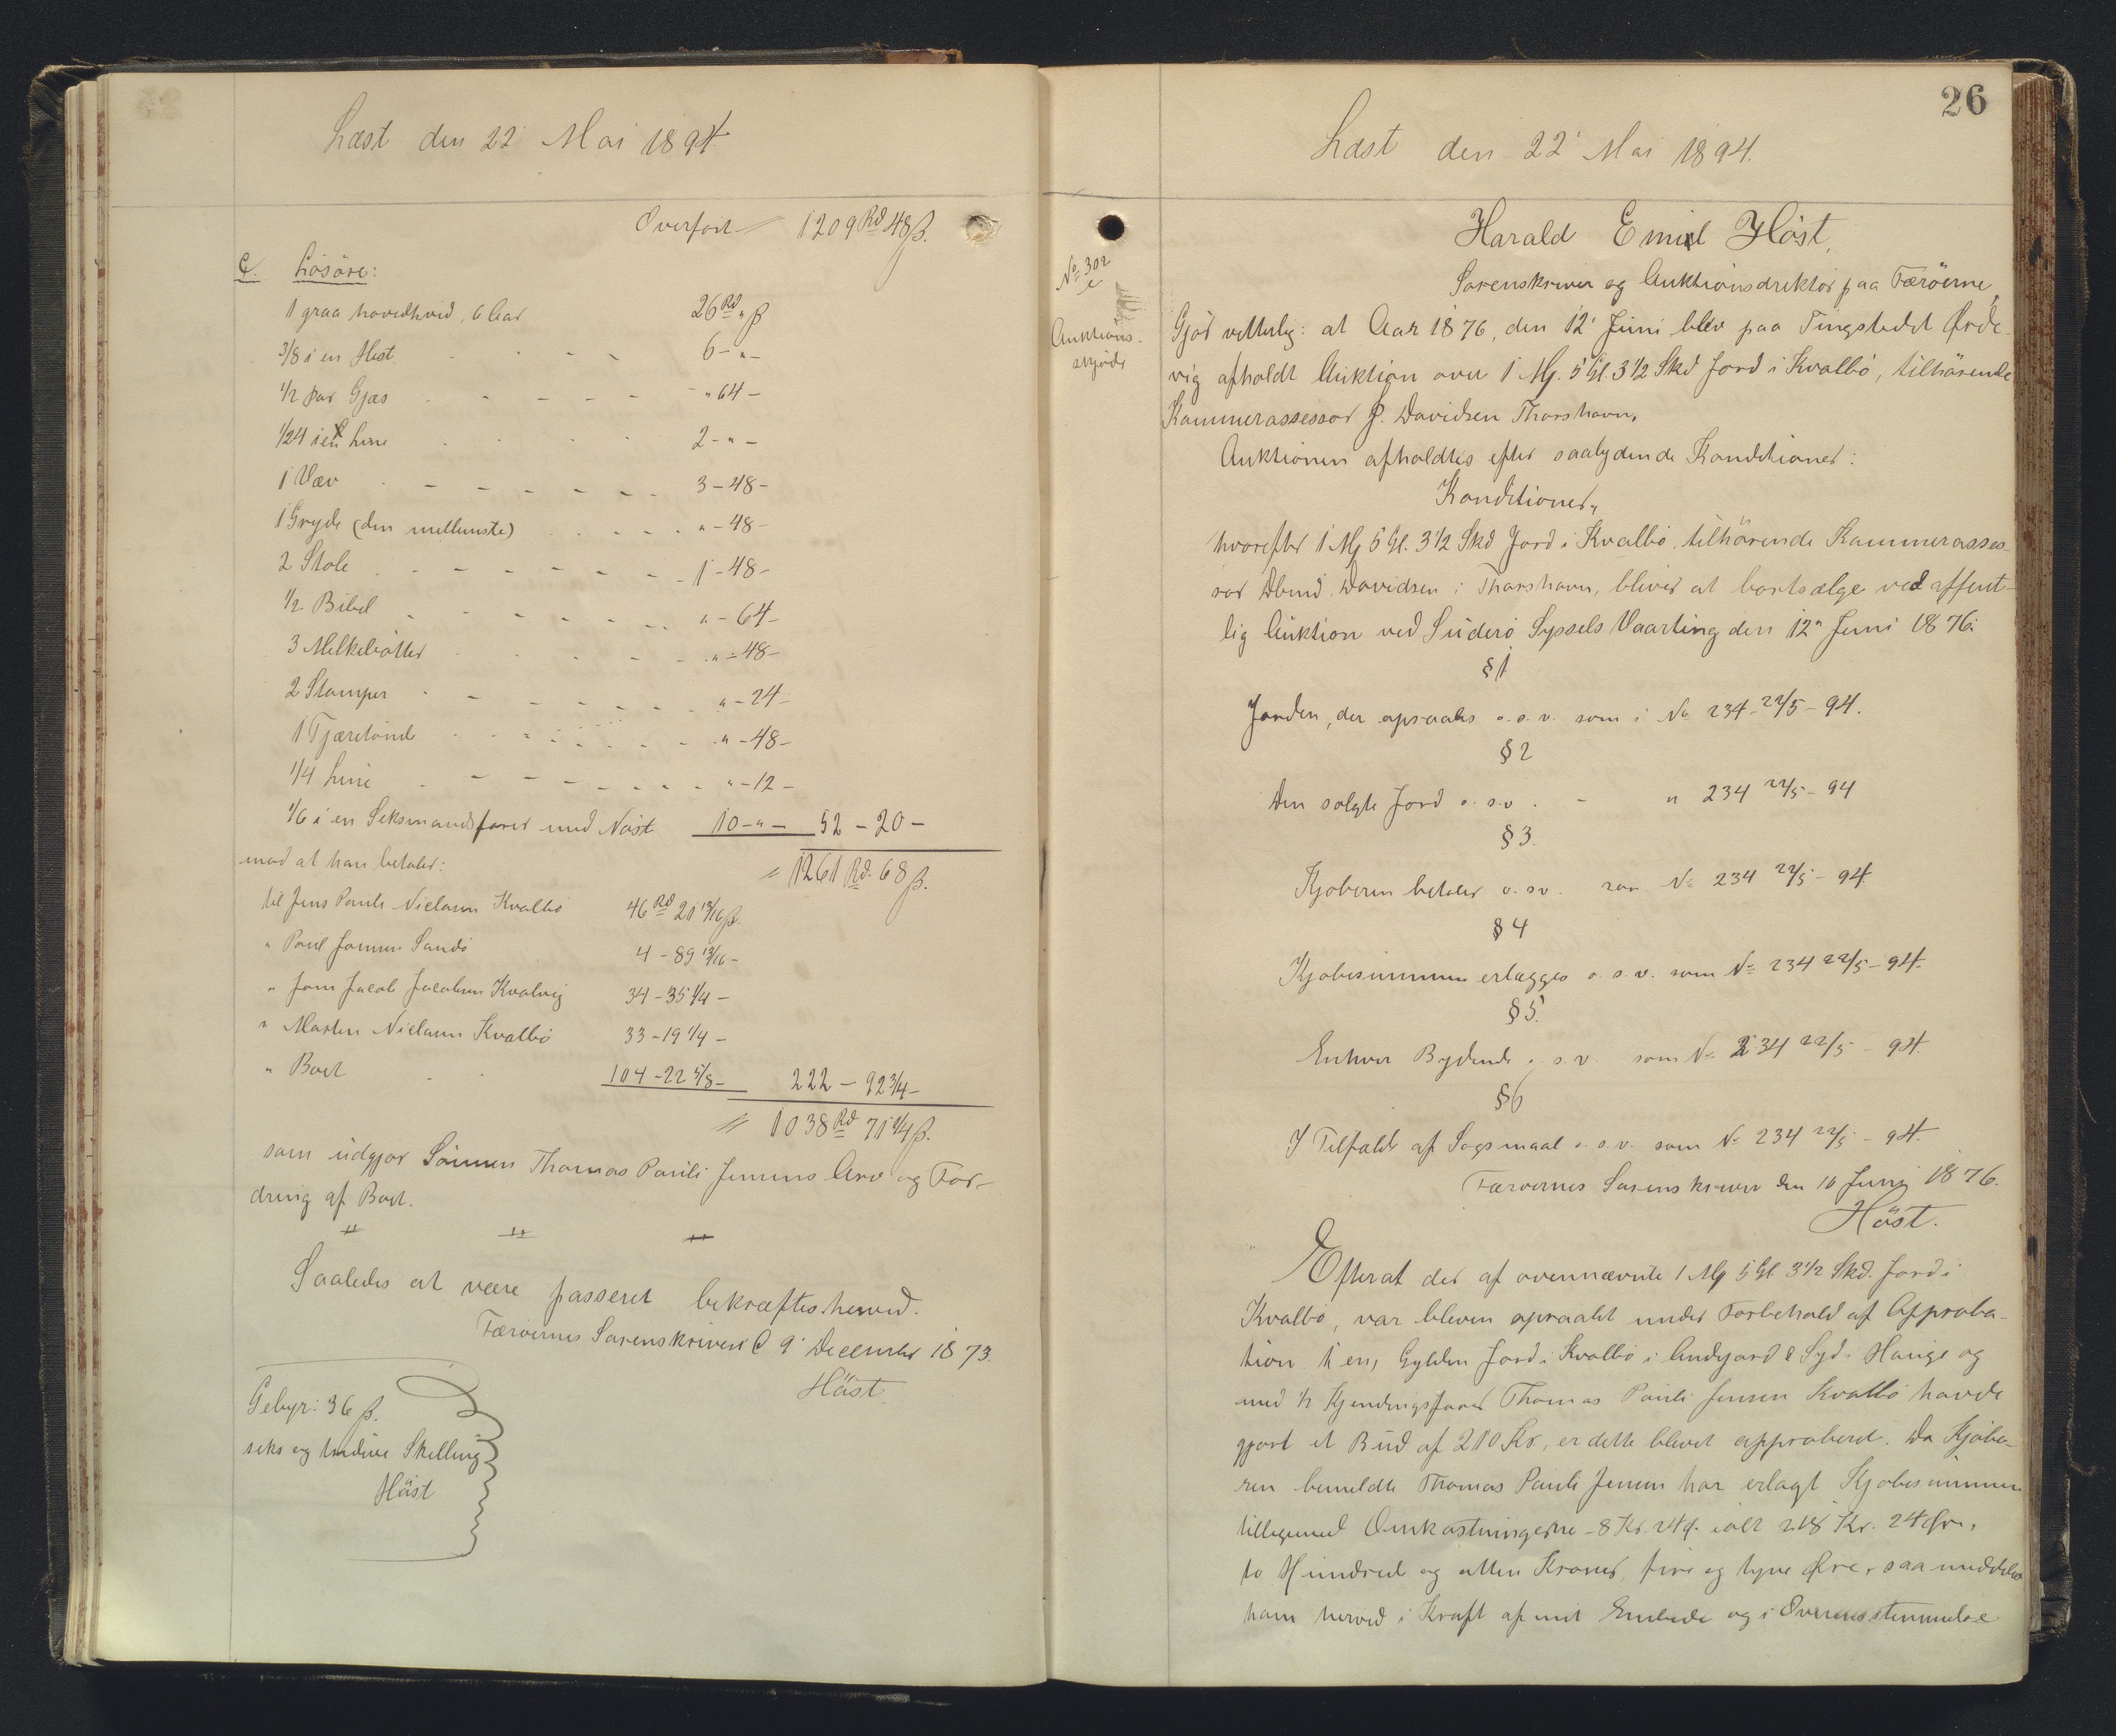 Læst den 22' Mai 1894
Overført = 1209 Rd 48 ß.
C. Lösöre:
1 graa hovedhvid, 6 Aar 26 Rd " ß
3/8 i en Hest - - - - 6 - " -
1/2 Par Gjæs - - - - - " 64 -
1/24 i en Line - - - - 2 - " -
1 Væv - - - - - - - 3 - 48 -
1 Gryde (den mellemste) - - - - " - 48 -
2 Stole - - - - - - - 1 - 48 -
1/2 Bibel - - - - - - " - 64 -
3 Melkebötter - - - - " - 48 -
2 Stamper - - - - - - " - 24 -
1 Tjæretönde - - - - - - " - 48 -
1/4 Line - - - - - - " - 12 -
1/6 i en Seksmandsfarer med Nöst 10 - " - 52 - 20 -
mod at han betaler: = 1261 Rd. 68 ß.
til Jens Pauli Nielsen Kvalbö 46 Rd 21 13/16 ß.
" Poul Jensen Sandö 4 - 89 13/16 -
" Jens Jacob Jacobsen Kvalvig 34 - 35 1/4 -
" Morten Nielsen Kvalbö 33 - 19 1/4 -
" Boet - - 104 - 22 5/8 - 222 - 92 3/4 -
= 1038 Rd 71 1/4 ß.
som udgjør Sönnen Thomas Pauli Jensens Arv og For-
dring af Boet.
" " "
Saaledes at være passeret bekræftes herved.
Færøernes Sorenskriveri d 9' December 1873.
Höst
Gebyr: 36 ß.
seks og tredive Skilling
Höst
26
Læst den 22' Mai 1894.
No 302
Auktions-
skjøde
Harald Emil Höst,
Sorenskriver og Auktionsdirektör paa Færöerne,
Gjör vitterlig: at Aar 1876, den 12' Juni blev paa Tingstedet Ørde-
vig afholdt Auktion over 1 Mg. 5 Gl. 3 1/2 Skd Jord i Kvalbö, tilhörende
Kammerassessor Davidsen Thorshavn.
Auktionen afholdtes efter saalydende Konditioner:
Konditioner,
hvorefter 1 Mg 5 Gl. 3 1/2 Skd Jord i Kvalbö, tilhörende Kammerasses-
sor Davidsen i Thorshavn, bliver at bortsælge ved offent-
lig Auktion ved Suderö Syssels Vaarting den 12' Juni 1876.
§ 1
Jorden, der opraabes o. s. v. som i No 234 - 22/5 - 94.
§ 2
Den solgte Jord o. s. v. - " 234 22/5 - 94
§ 3.
Kjøberen betaler o. s. v. som No 234 22/5 - 94.
§ 4
Kjøbesummen erlægges o. s. v. som No 234 22/5 - 94.
§ 5.
Enhver Bydende o. s. v. som No 234 22/5 - 94.
§ 6
I Tilfælde af Sagsmaal o. s. v. som No 234 22/5 - 94.
Færøernes Sorenskriveri den 10 Juni 1876.
Höst.
Efterat der af ovennævnte 1 Mg 5 Gl 3 1/2 Skd. Jord i
Kvalbö, var bleven opraabt under Forbehold af Approba-
tion 1 en, Gylden Jord i Kvalbö i Andgard Syd i Hauge og
med 1/2 Kjendingsfarer Thomas Pauli Jensen Kvalbö havde
gjort et Bud af 210 Kr, er dette blevet approberet. Da Kjøbe-
ren bemeldte Thomas Pauli Jensen har erlagt Kjøbesummen
tilligemed Omkostningerne - 8 Kr. 24 Ø. ialt 218 Kr. 24 Øre,
to Hundrede og atten Kroner, fire og tyve Øre, saa meddeles
ham herved i Kraft af mit Embede og i Overensstemmelse